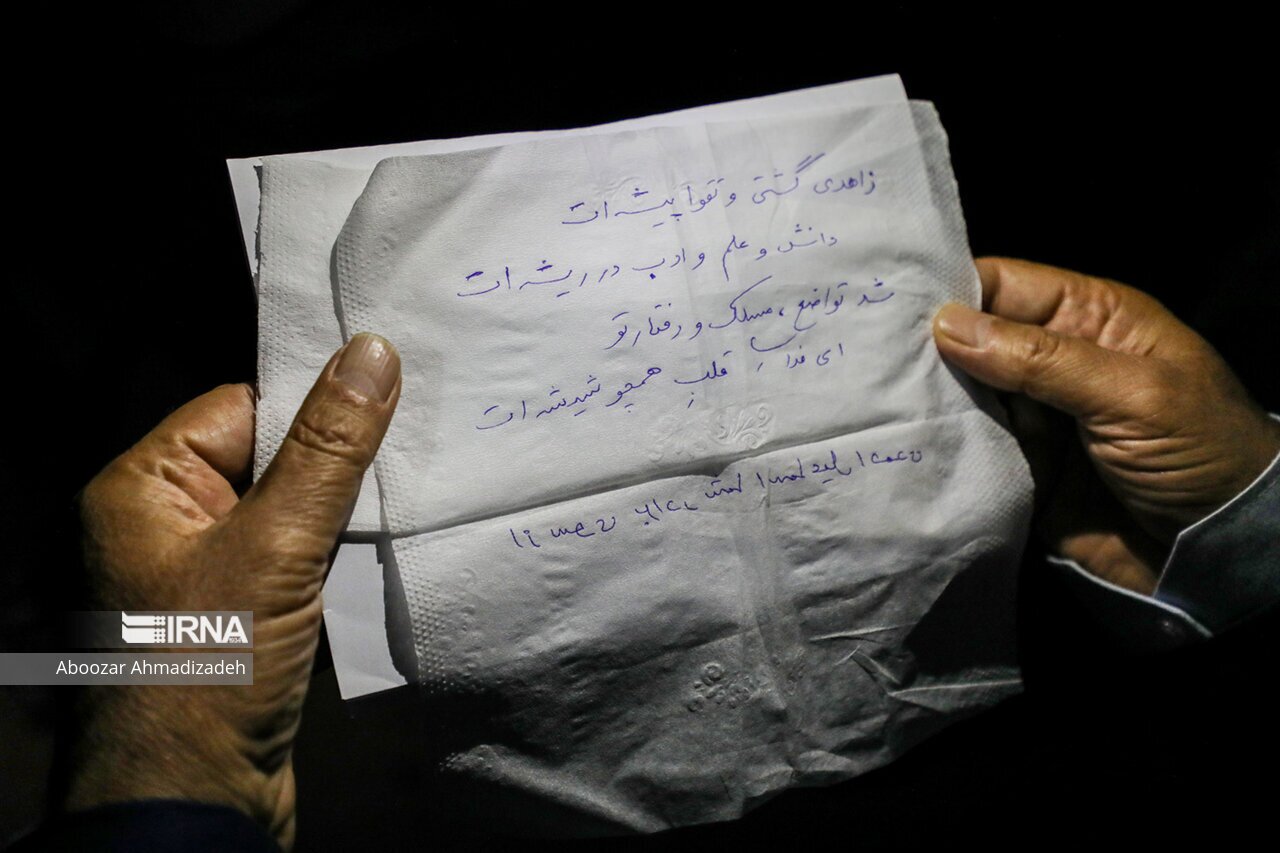 زاهدی گشتی و تقوا پیشه ات
دانش و علم و ادب در ریشه ات
شد تواضع، مسلک و رفتار تو
ای فدا قلبِ همچو شیشه ات
IRNA
Aboozar Ahmadizadeh